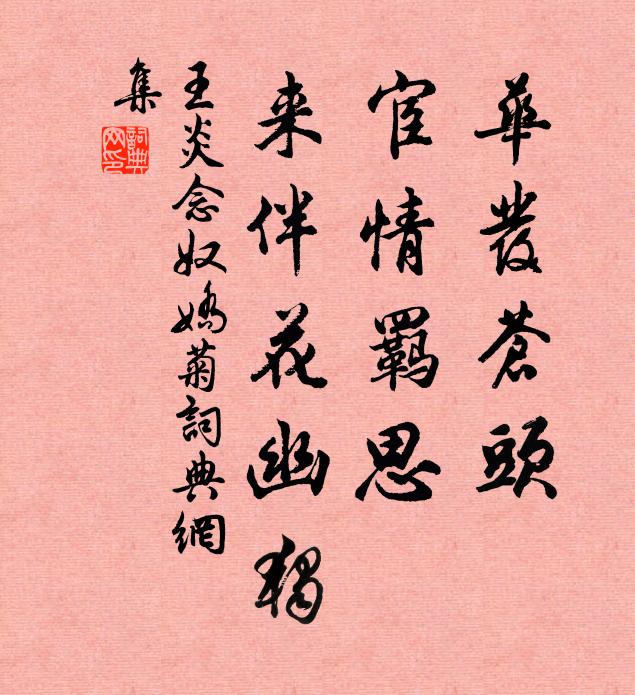 華發蒼頭
宦情羈思
来伴花幽獨
王炎念奴嬌菊詞典網
集
詞典網印